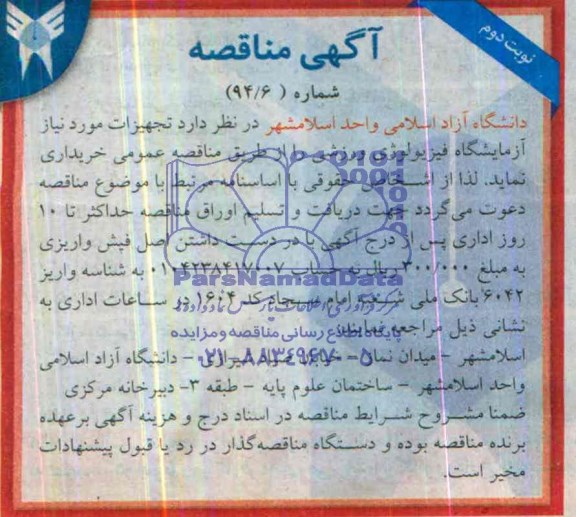 نوبت دوم
آگهی مناقصه
شماره ( ۹۴/۶)
دانشگاه آزاد اسلامی واحد اسلامشهر در نظر دارد تجهیزات مورد نیاز
آزمایشگاه فیزیولوژی ورزشی را از طریق مناقصه عمومی خریداری
نماید. لذا از اشخاص حقوقی با اساسنامه مرتبط با موضوع مناقصه
دعوت می‌گردد جهت دریافت و تسلیم اوراق مناقصه حداکثر تا ۱۰
روز اداری پس از درج آگهی با در دست داشتن اصل فیش واریزی
به مبلغ ۳۰۰/۰۰۰ ریال به حساب ۰۱۰۴۲۳۸۴۱۷۰۰۷ به شناسه واریز
ParsNamadData
۶۰۴۲ بانک ملی شعبه امام سجاد کد ۱۶۰۴ در ساعات اداری به
نشانی ذیل مراجعه نمایند.
پایگاه اطلاع رسانی مناقصه و مزایده
اسلامشهر – میدان نماز – – دانشگاه آزاد اسلامی
۰۲۱-۸۸۳۴۹۶۷۰-۵
واحد اسلامشهر – ساختمان علوم پایه – طبقه ۳- دبیرخانه مرکزی
ضمنا مشروح شرایط مناقصه در اسناد درج و هزینه آگهی برعهده
برنده مناقصه بوده و دستگاه مناقصه‌گذار در رد یا قبول پیشنهادات
مخیر است.